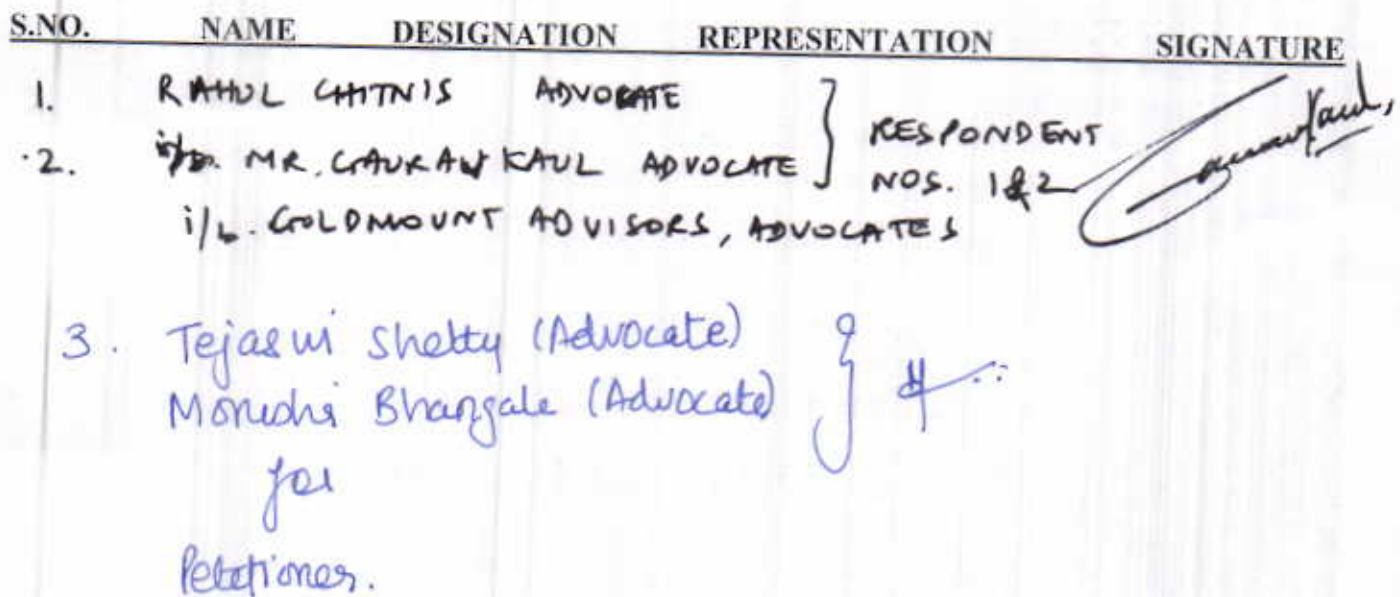 S.NO. NAME DESIGNATION REPRESENTATION SIGNATURE
1. RAHUL CHITNIS ADVOCATE
2. MR. GAURAV KAUL ADVOCATE } RESPONDENT NOS. 1 & 2
i/b. GOLDMOUNT ADVISORS, ADVOCATES
3. Tejaswi Shetty (Advocate)
Bhangale (Advocate)
for
Petitioner.